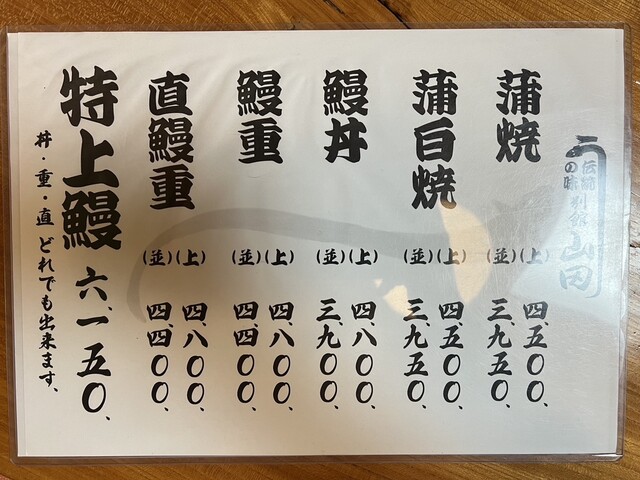 伝統の味
別館
山田
蒲焼
(上) 四、五〇〇、
(並) 三、九五〇、
蒲白焼
(上) 四、五〇〇、
(並) 三、九五〇、
鰻丼
(上) 四、八〇〇、
(並) 三、九〇〇、
鰻重
(上) 四、八〇〇、
(並) 四、四〇〇、
直鰻重
(上) 四、八〇〇、
(並) 四、四〇〇、
特上鰻 六、一五〇、
丼・重・直 どれでも出来ます、